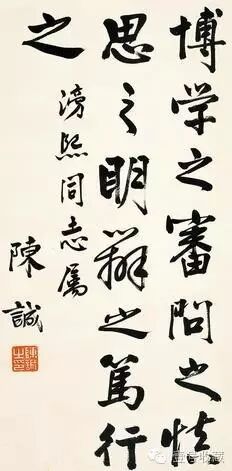 博学之審問之慎
思之明辨之篤行
之
滂熙同志属
陳誠
陳誠之印